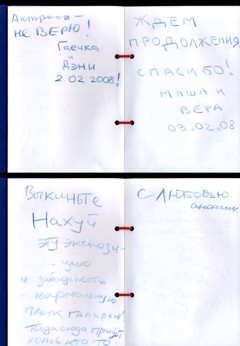 Актриса -
НЕ ВЕРЮ!
Гаечка
и
Дэни
2.02 2008!
ЖДЕМ
ПРОДОЛЖЕНИЯ
СПАСИБО!
МАША И
ВЕРА
03.02.08
Выкиньте
Нахуй
эту экспози-
-цию
и забабахайте
нормальную
ПАНК ГАЛЕРЕЮ!
Тогда сюда придёт
хоть кто-то
С ЛЮБОВЬЮ
аноним